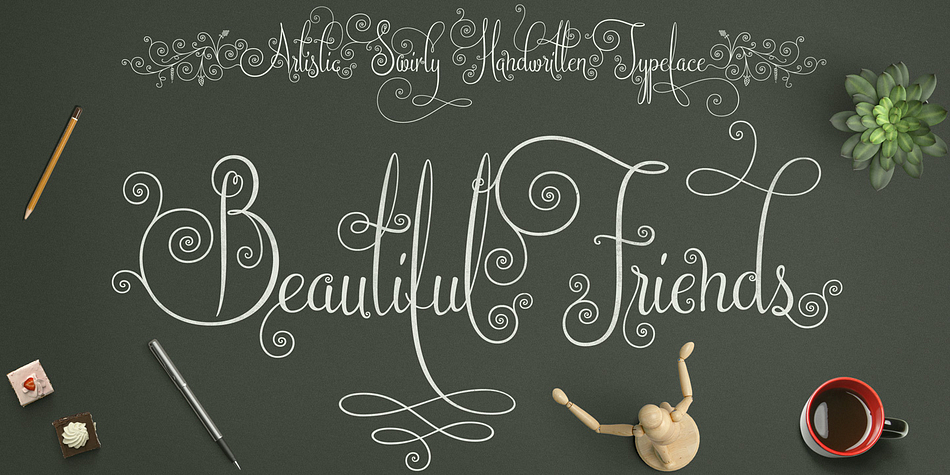 Artistic Swirly Handwritten Typeface
Beautiful Friends